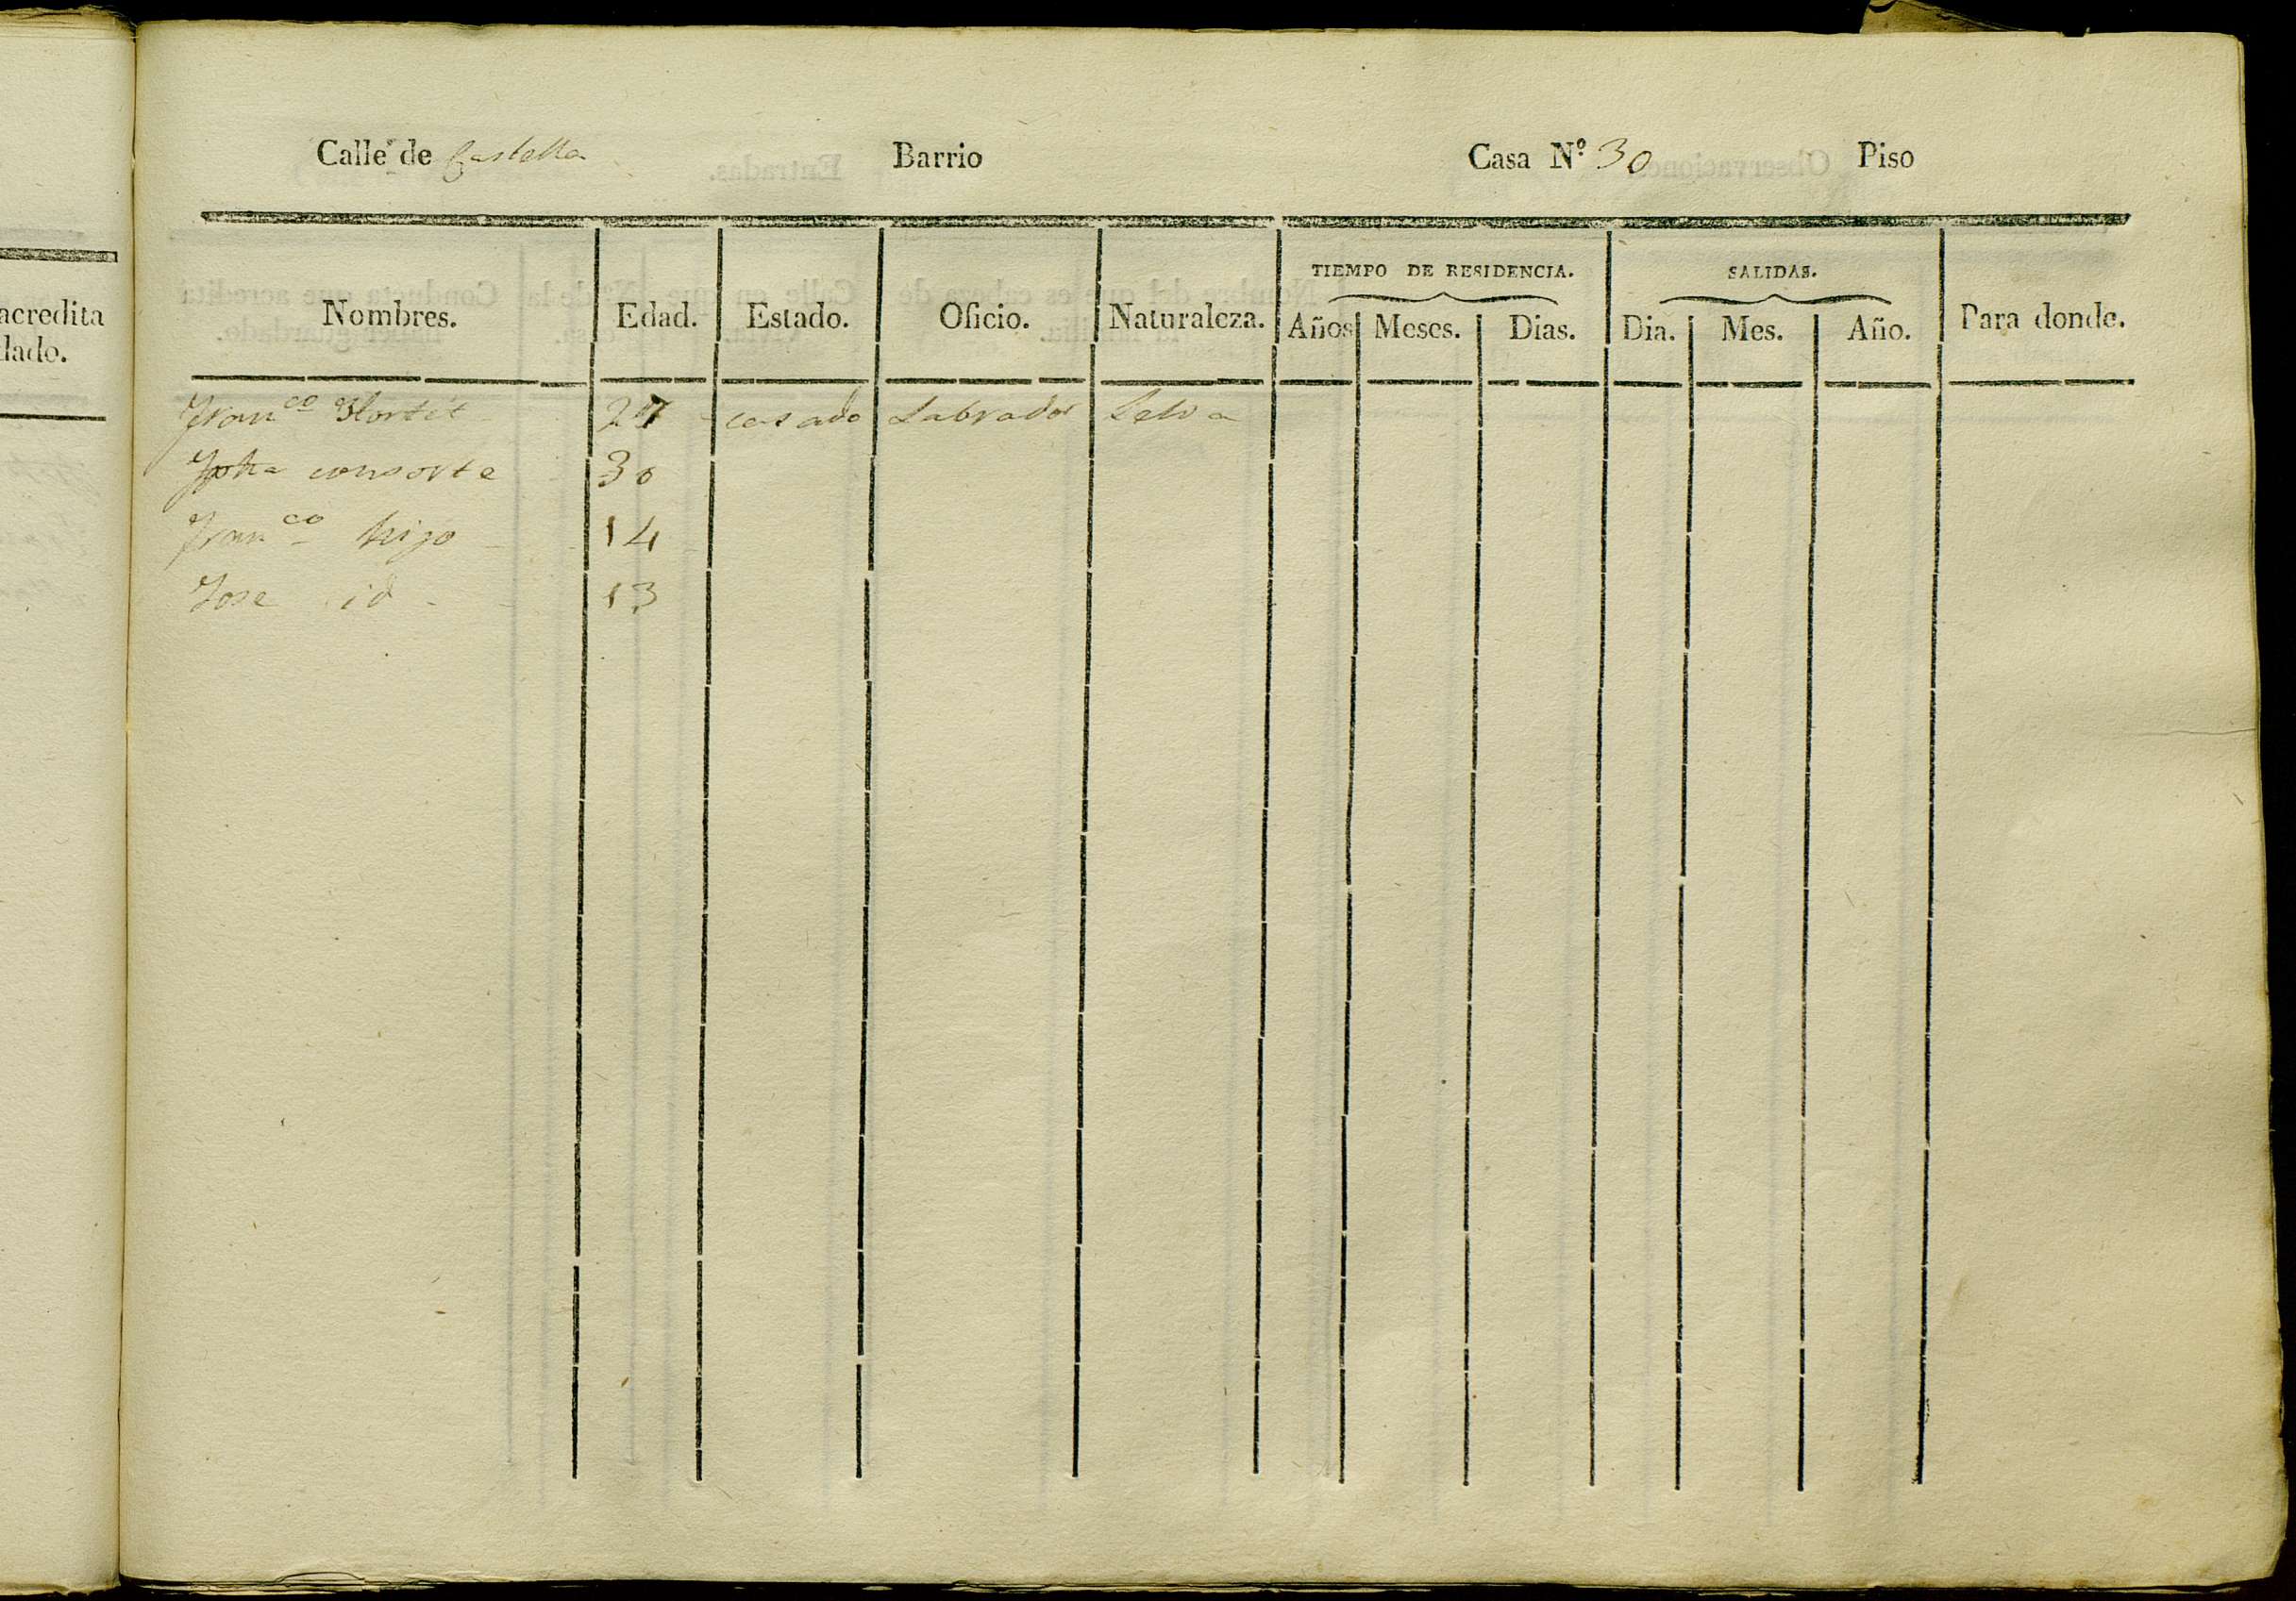 acredita
dado.
Calle de Castella Barrio Casa Nº 30 Piso
TIEMPO DE RESIDENCIA. SALIDAS.
Nombres. Edad. Estado. Oficio. Naturaleza. Años Meses. Dias. Dia. Mes. Año. Para donde.
Franco Hortét 27 casado Labrador Selva
Jpha consorte 30
Franco hijo 14
Jose id 13